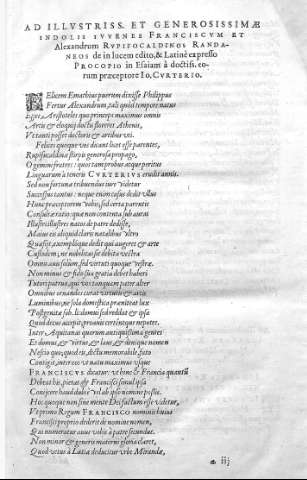 AD ILLVSTRISS. ET GENEROSISSIMÆ
INDOLIS IVVENES FRANCISCVM ET
Alexandrum RVPIFOCALDINOS RANDA-
NEOS de in lucem edito, & Latinè expresso
PROCOPIO in Esaiam à doctiss. eo-
rum præceptore Io. CVRTERIO.
FElicem Emathius puerum dixisse Philippus
Fertur Alexandrum, tali quòd tempore natus
Esset, Aristoteles quo princeps maximus omnis
Artis & eloquij doctis floreret Athenis,
Vt tanti posset doctoris & artibus vti.
Felicis quoque vos dicant licet esse parentes,
Rupifocaldina stirps generosa propago,
O gemini fratres: quos tam probus atque peritus
Linguarum à teneris CVRTERIVS erudit annis.
Sed non fortunæ tribuendus iure videtur
Successus tantus: neque enim casus dedit vllus
Hunc præceptorem vobis, sed certa parentis
Consultæ ratio: quæ non contenta sub auras
Illustri illustres natos de patre dedisse,
Maius eis aliquid claris natalibus vltro
Quæsiit, exemplóque dedit qui augeret & arte
Custodem, ne nobilitas sit debita vestra
Omnis auis solùm, sed virtuti quoque vestræ.
Non minus & fido sua gratia debet haberi
Tutori patruo, qui vos tanquam pater alter
Omnibus ornandos curat virtutis & artis
Luminibus, ne sola domestica præniteat lux
Posgenita sub. Is domus sed reddat & ipsa
Quod decus accipit, proauis certéque nepotes.
Inter Aquitanas quarum antiquissima gentes
Et domus, & virtus & laus, & denique nomen
Nescio quo, quod tu, dictu memorabile, fato
Contigit, inter eos vt natu maximus vsque
FRANCISCVS dicatur: vt hunc & Francia quantum
Debeat his, pietas & Francisci simul ipsa
Conijcere haud dubiè vel ab ipso nomine possis.
Hoc quoque non sine mente Deûm factum esse videtur,
Vt primo Regum FRANCISCO nominis huius
Francisci proprio deferret de nomine nomen,
Qui numeratur auus vobis à patre secundus.
Non minor & generis materni gloria claret,
Quod vetus à Latia deducitur vrbe Mirandæ,
* iij